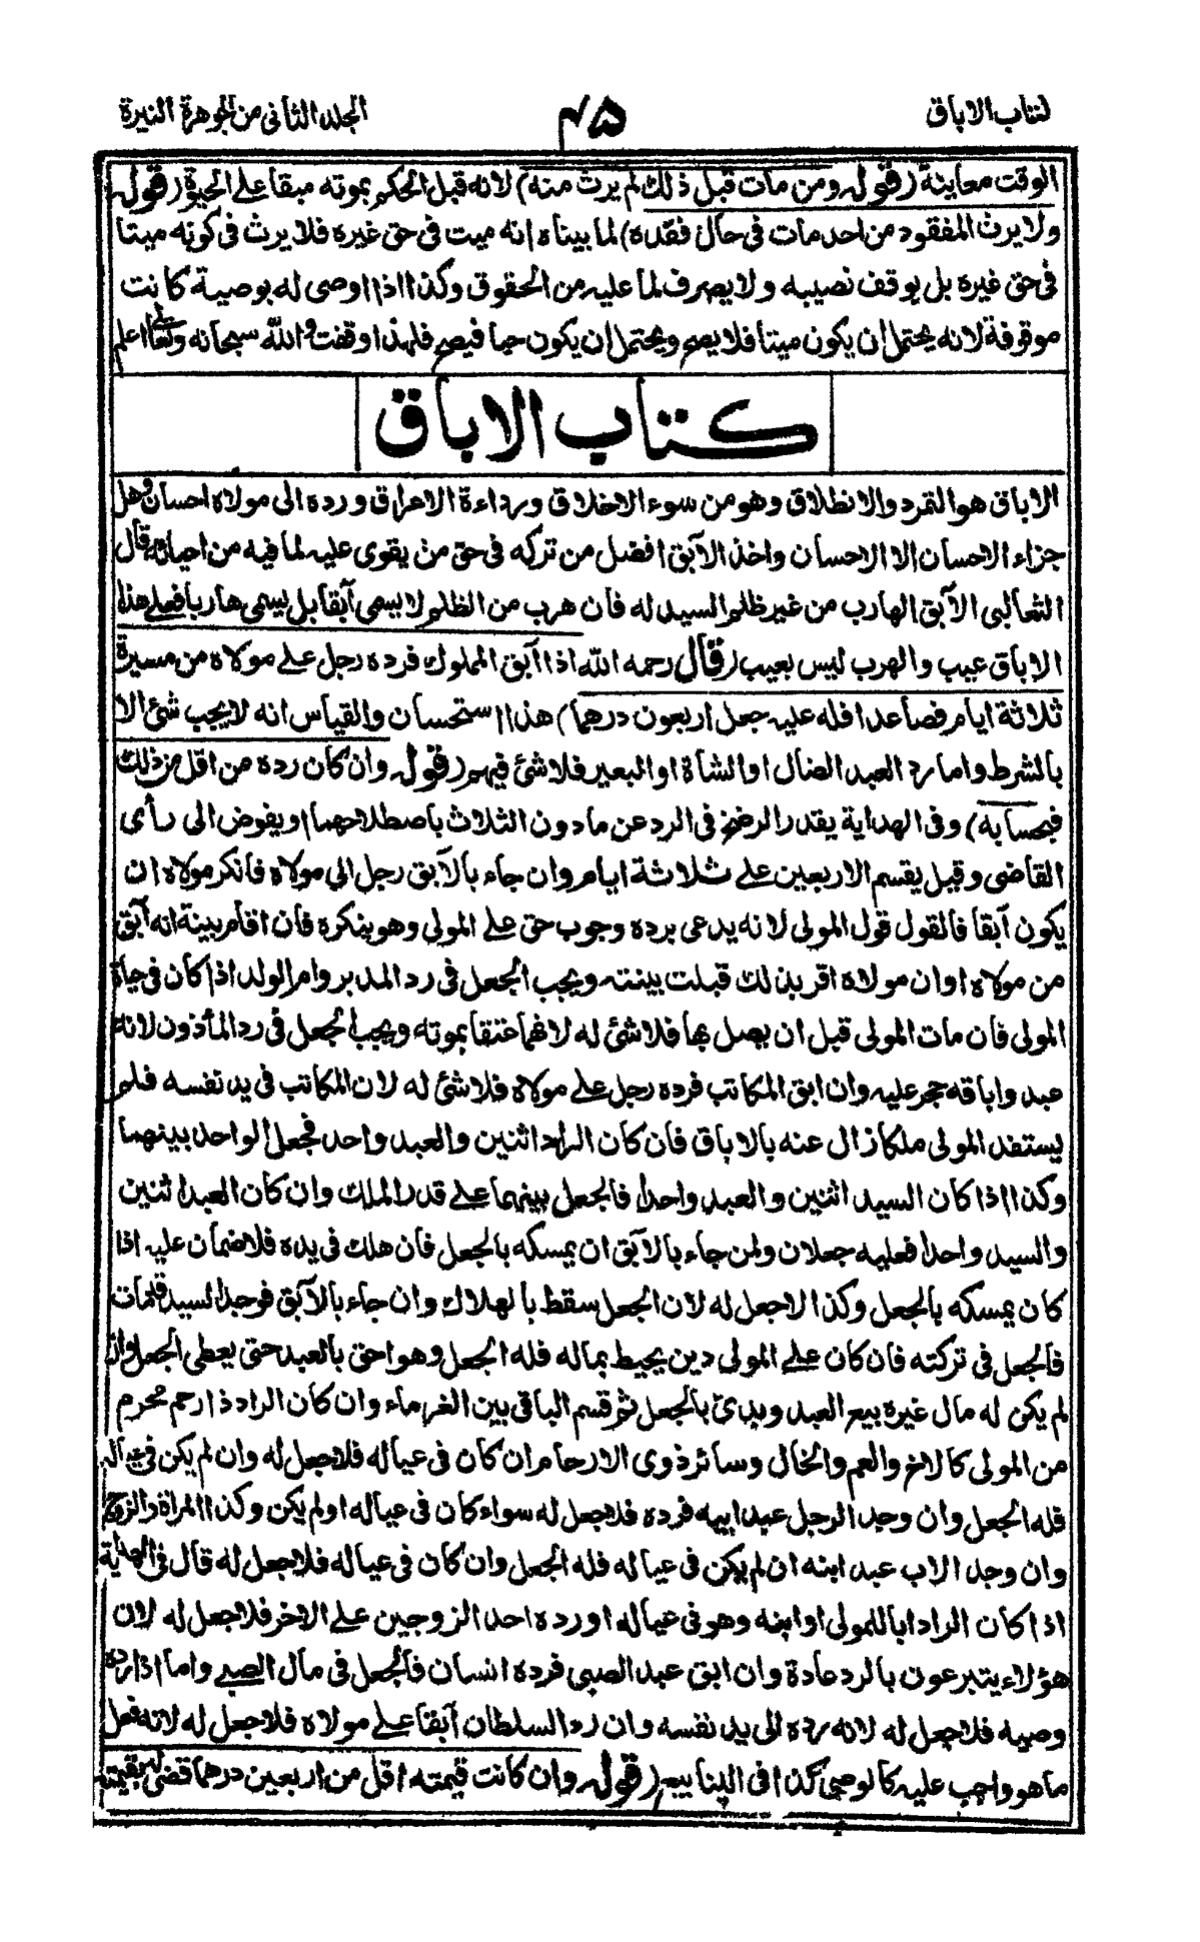 كتاب الاباق ۴۵ المجلد الثانى من الجوهرة النيرة
الوقت معاينة (قوله ومن مات قبل ذلك لم يرث منه) لانه قبل الحكم بموته مبقا على الحيوة (قوله
ولا يرث المفقود من احد مات فى حال فقده) لما بيناه انه ميت فى حق غيره فلا يرث فى كونه ميتا
فى حق غيره بل يوقف نصيبه ولا يصرف لما عليه من الحقوق وكذا اذا اوصى له بوصية كانت
موقوفة لانه يحتمل ان يكون ميتا فلا يصح ويحتمل ان يكون حيا فيصح فلهذا وقفت والله سبحانه وتعالى اعلم
كتاب الاباق
الاباق هو التمرد والانطلاق وهو من سوء الاخلاق ورداءة الاعراق ورده الى مولاه احسان وهل
جزاء الاحسان الا الاحسان واخذ الآبق افضل من تركه فى حق من يقوى عليه لما فيه من احيائه قال
الثعالبى الآبق الهارب من غير ظلم السيد له فان هرب من الظلم لا يسمى آبقا بل يسمى هاربا فعلى هذا
الاباق عيب والهرب ليس بعيب (قال رحمه الله اذا ابق المملوك فرده رجل على مولاه من مسيرة
ثلاثة ايام فصاعدا فله عليه جعل اربعون درهما) هذا استحسان والقياس انه لا يجب شئ الا
بالشرط واما رد العبد الضال او الشاة او البعير فلا شئ فيهم (قوله وان كان رده من اقل من ذلك
فبحسابه) وفى الهداية يقدر الرضخ فى الرد عن ما دون الثلاث باصطلاحهما او يفوض الى رأى
القاضى وقيل يقسم الاربعين على ثلاثة ايام وان جاء بالآبق رجل الى مولاه فانكر مولاه ان
يكون آبقا فالقول قول المولى لانه يدعى برده وجوب حق على المولى وهو ينكره فان اقام بينة انه آبق
من مولاه او ان مولاه اقر بذلك قبلت بينته ويجب الجعل فى رد المدبر وام الولد اذا كان فى حياة
المولى فان مات المولى قبل ان يصل بها فلا شئ له لانهما عتقا بموته ويجب الجعل فى رد المأذون لانه
عبد واباقه حجر عليه وان ابق المكاتب فرده رجل على مولاه فلا شئ له لان المكاتب فى يد نفسه فلم
يستفد المولى ملكا زال عنه بالاباق فان كان الراد اثنين والعبد واحد فجعل الواحد بينهما
وكذا اذا كان السيد اثنين والعبد واحدا فالجعل بينهما على قدر الملك وان كان العبد اثنين
والسيد واحدا فعليه جعلان ولمن جاء بالآبق ان يمسكه بالجعل فان هلك فى يده فلا ضمان عليه اذا
كان يمسكه بالجعل وكذا لا جعل له لان الجعل سقط بالهلاك وان جاء بالآبق فوجد السيد قد مات
فالجعل فى تركته فان كان على المولى دين يحيط بماله فله الجعل وهو احق بالعبد حتى يعطى الجعل وان
لم يكن له مال غيره بيع العبد وبدئ بالجعل ثم قسم الباقى بين الغرماء وان كان الراد ذا رحم محرم
من المولى كالاخ والعم والخال وسائر ذوى الارحام ان كان فى عياله فلا جعل له وان لم يكن فى عياله
فله الجعل وان وجد الرجل عبد ابيه فرده فلا جعل له سواء كان فى عياله او لم يكن وكذا المرأة والزوج
وان وجد الاب عبد ابنه ان لم يكن فى عياله فله الجعل وان كان فى عياله فلا جعل له قال فى الهداية
اذا كان الراد ابا للمولى او ابنه وهو فى عياله او رده احد الزوجين على الاخر فلا جعل له لان
هؤلاء يتبرعون بالرد عادة وان ابق عبد الصبى فرده انسان فالجعل فى مال الصبى واما اذا رده
وصيه فلا جعل له لانه رده الى يد نفسه وان رد السلطان آبقا على مولاه فلا جعل له لانه فعل
ما هو واجب عليه كالوصى كذا فى الينابيع (قوله وان كانت قيمته اقل من اربعين درهما قضى له بقيمته